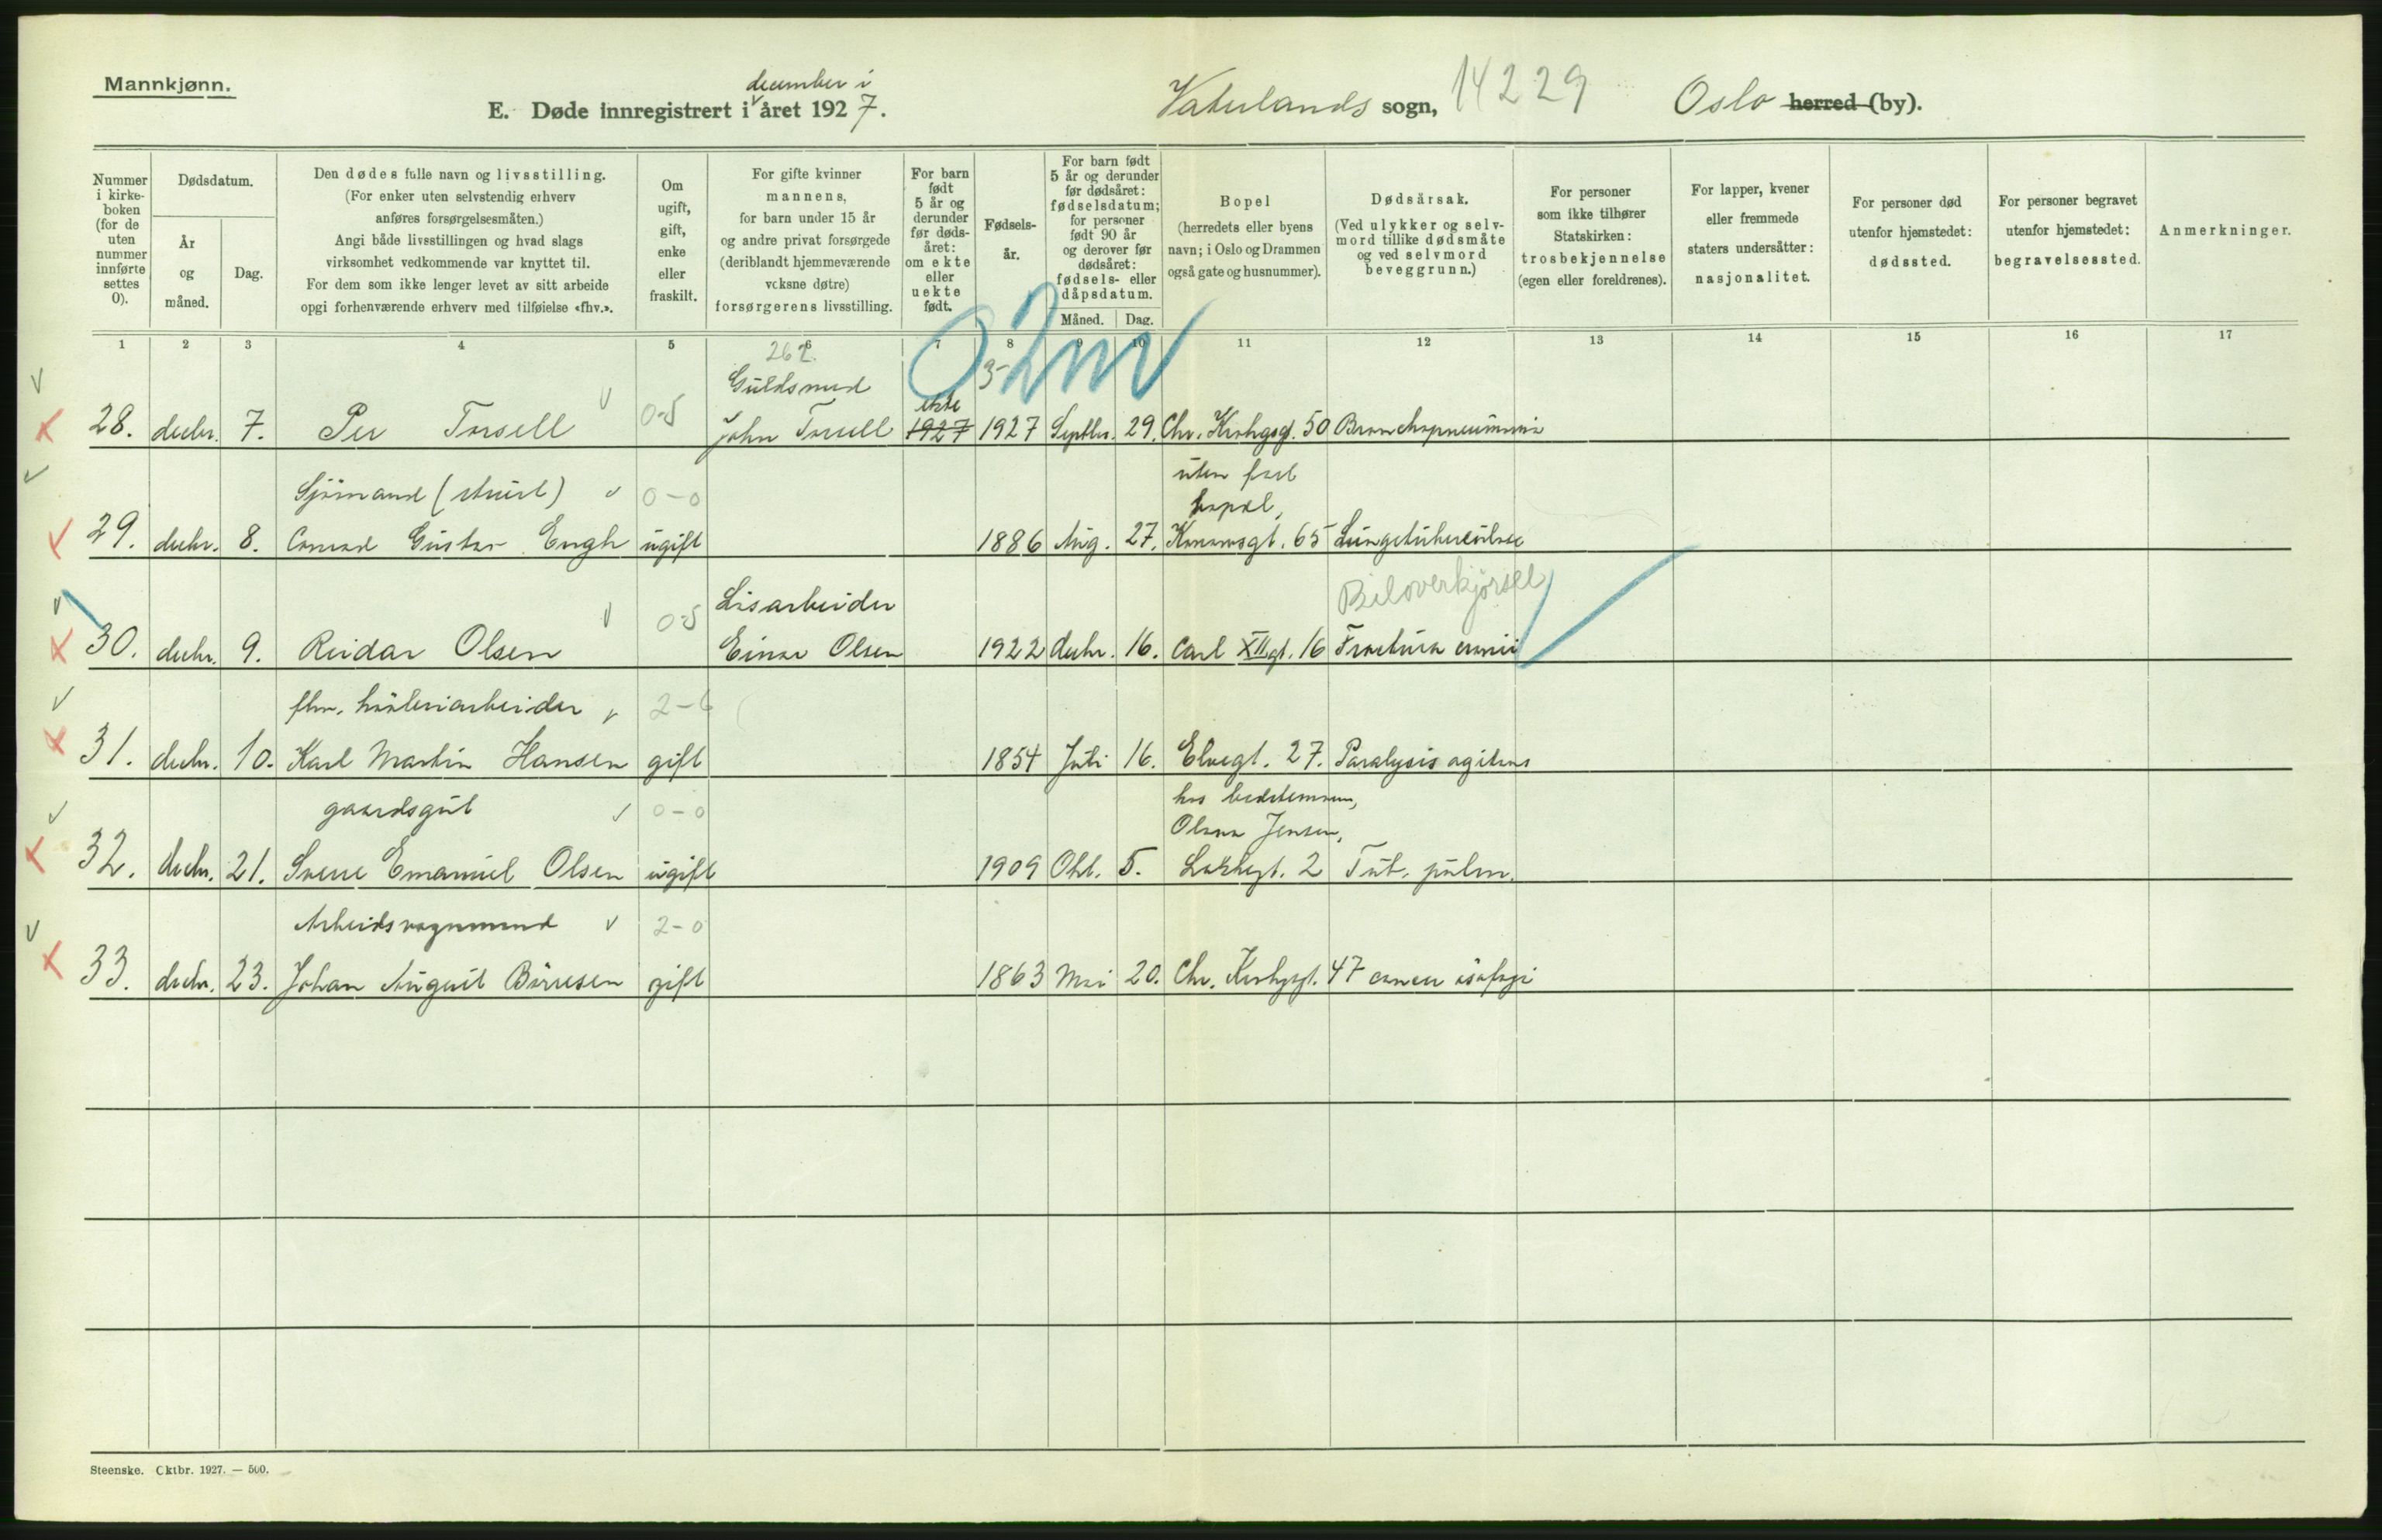 Mannkjønn.
december i
E. Døde innregistrert i året 1927.
Vaterlands sogn, 14229 Oslo herred (by).
Nummer i kirkeboken (for de uten nummer innførte settes 0).
Dødsdatum.
År og måned.
Dag.
Den dødes fulle navn og livsstilling.
(For enker uten selvstendig erhverv
anføres forsørgelsesmåten.)
Angi både livsstillingen og hvad slags
virksomhet vedkommende var knyttet til.
For dem som ikke lenger levet av sitt arbeide
opgi forhenværende erhverv med tilføielse «fhv.».
Om ugift, gift, enke eller fraskilt.
For gifte kvinner
mannens,
for barn under 15 år
og andre privat forsørgede
(deriblandt hjemmeværende
voksne døtre)
forsørgerens livsstilling.
For barn født 5 år og derunder før dødsåret: om ekte eller uekte født.
Fødselsår.
For barn født
5 år og derunder
før dødsåret:
fødselsdatum;
for personer
født 90 år
og derover før
dødsåret:
fødsels- eller
dåpsdatum.
Måned. Dag.
Bopel
(herredets eller byens
navn; i Oslo og Drammen
også gate og husnummer).
Dødsårsak.
(Ved ulykker og selvmord
tillike dødsmåte
og ved selvmord
beveggrunn.)
For personer
som ikke tilhører
Statskirken:
trosbekjennelse
(egen eller foreldrenes).
For lapper, kvener
eller fremmede
staters undersåtter:
nasjonalitet.
For personer død
utenfor hjemstedet:
dødssted.
For personer begravet
utenfor hjemstedet:
begravelsessted.
Anmerkninger.
1 2 3 4 5 6 7 8 9 10 11 12 13 14 15 16 17
262.
Guldsmed
ekte
28. decbr. 7. Per Torsell 0-5 John Torsell 1927 1927 Septbr. 29. Chr. Krohgsgt. 50 Bronchopneumonia
Sjömand (stuert) 0-0 uten fast
bopæl,
29. decbr. 8. Conrad Gustav Engh ugift 1886 Aug. 27. Lungetuberculose
Lisarbeider Biloverkjørsel
30. decbr. 9. Reidar Olsen 0-5 Einar Olsen 1922 decbr. 16. Carl XII gt. 16 Fractura cranii
fhv. 2-6
31. decbr. 10. Karl Martin Hansen gift 1854 Juli 16. Elvegt. 27. Paralysis agitans
gaardsgut 0-0 hos bedstemoren,
Olava Jensen,
32. decbr. 21. Sverre Emanuel Olsen ugift 1909 Okt. 5. Lakkegt. 2 Tub. pulm.
Arbeidsvognmand 2-0
33. decbr. 23. Johan August Börresen gift 1863 Mai 20. Chr. Krohgsgt. 47 cancer øsofagi
Steenske. Oktbr. 1927. — 500.